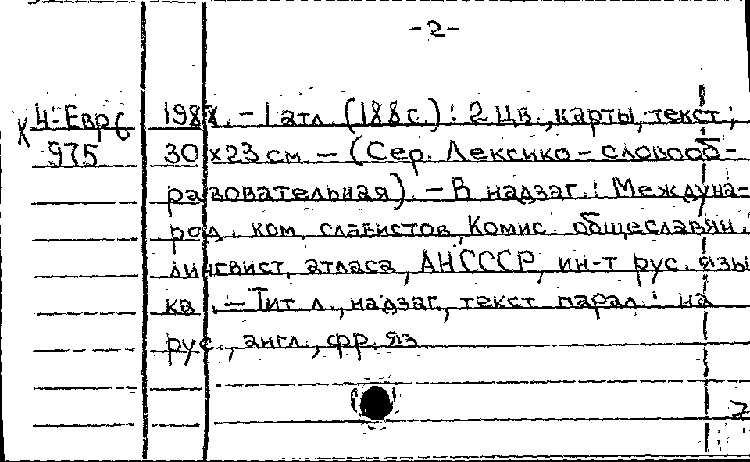 -2-
Ц-Евр6 1988. - 1 атл. (188 с.) : 2 цв., карты, текст;
975 30 х 23 см. - (Сер. Лексико-словооб-
разовательная). - В надзаг.: Междуна-
род. ком. славистов, Комис. общеславян.
лингвист. атласа, АН СССР, ин-т рус. язы
ка. - Тит. л., надзаг., текст парал.: на
рус., англ., фр. яз